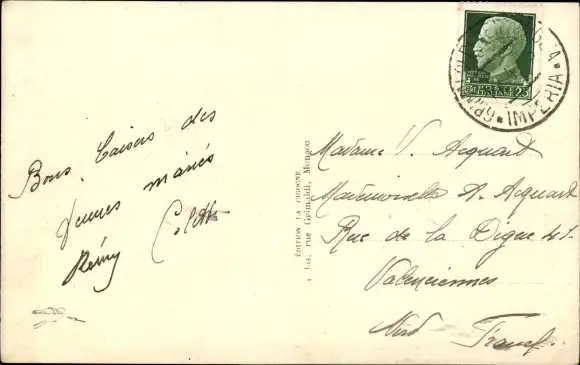 Bons baisers des
Jeunes mariés
Rémy Colette
EDITION LA CIGOGNE
rue Grimaldi, Monaco
IMPERIA
Madame V. Acquart
Mademoiselle A. Acquart
Rue de la Digue 41
Valenciennes
Nord France